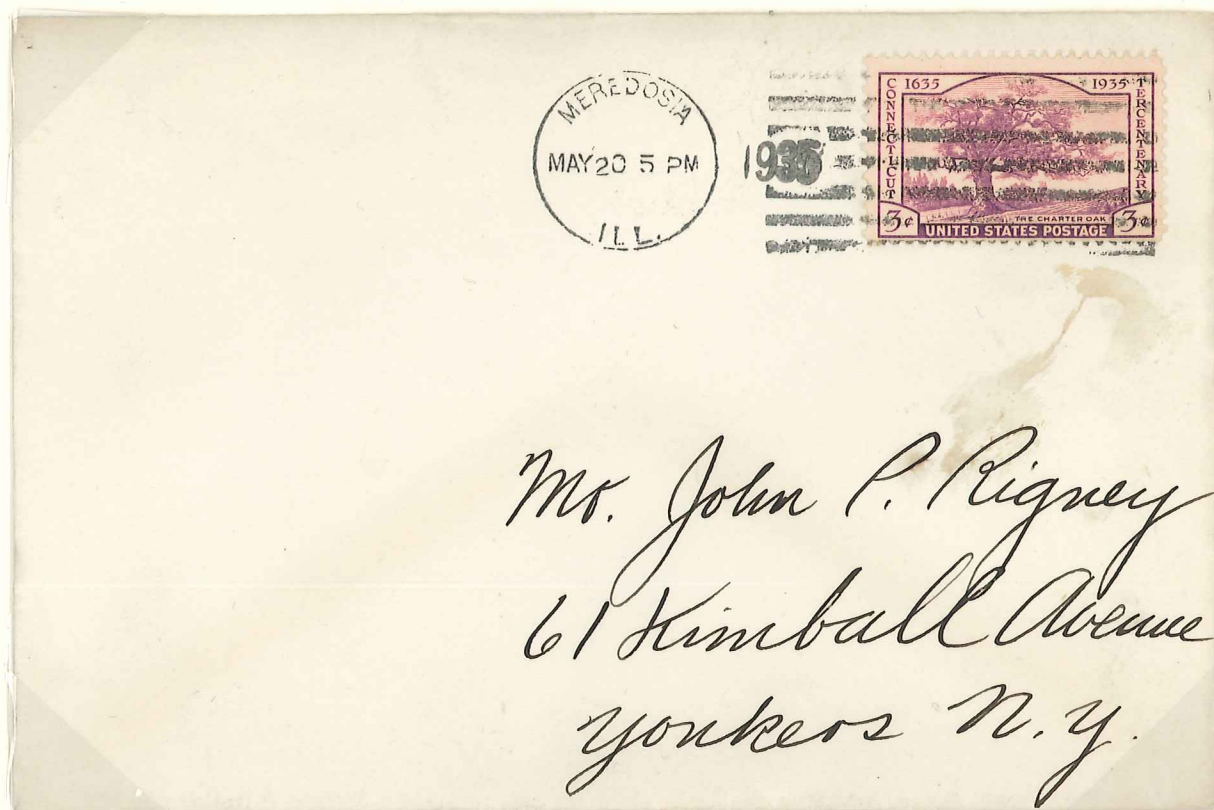 MEREDOSIA
MAY 20 5 PM
ILL.
1935
1635 1935
CONNECTICUT
TERCENTENARY
THE CHARTER OAK
3¢ 3¢
UNITED STATES POSTAGE
Mr. John P. Rigney
61 Kimball Avenue
Yonkers N.Y.